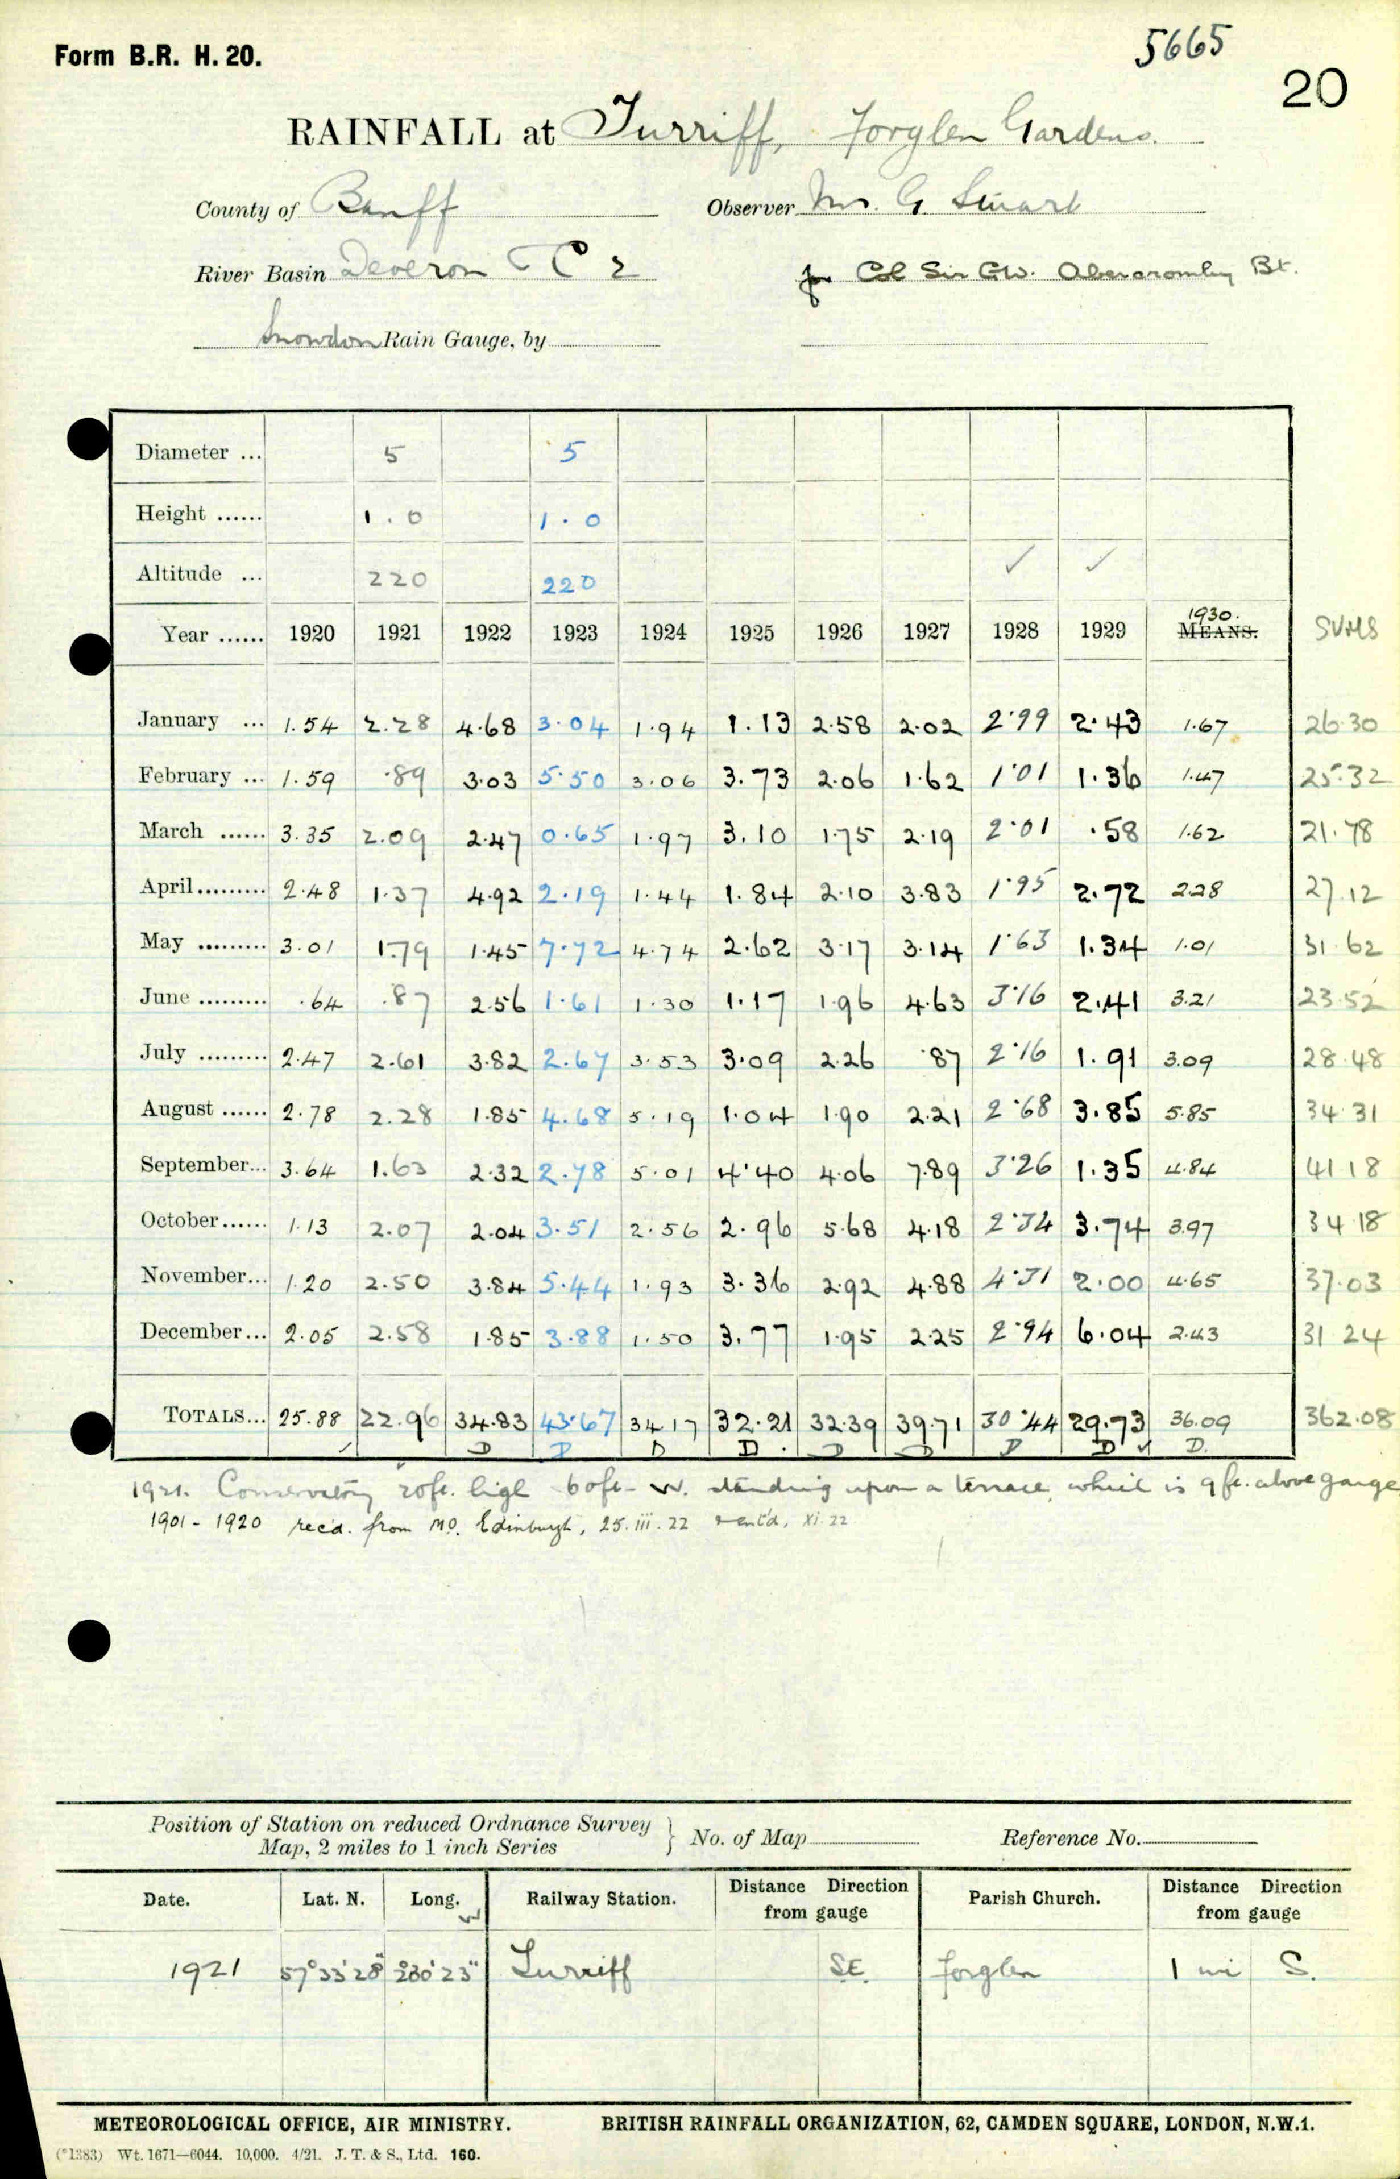 Form B.R. H. 20.
5665
20
RAINFALL at Turriff, Forglen Gardens.
County of Banff
Observer Mr. G. Smart
River Basin Deveron C 2
for Col Sir G.W. Abercromby Bt.
Snowdon Rain Gauge, by
Diameter ... 5 5
Height ...... 1.0 1.0
Altitude ... 220 220 ✓ ✓
Year ...... 1920 1921 1922 1923 1924 1925 1926 1927 1928 1929 1930. MEANS. SUMS
January ... 1.54 2.28 4.68 3.04 1.94 1.13 2.58 2.02 2.99 2.43 1.67 26.30
February ... 1.59 .89 3.03 5.50 3.06 3.73 2.06 1.62 1.01 1.36 1.47 25.32
March ...... 3.35 2.09 2.47 0.65 1.97 3.10 1.75 2.19 2.01 .58 1.62 21.78
April......... 2.48 1.37 4.92 2.19 1.44 1.84 2.10 3.83 1.95 2.72 2.28 27.12
May ......... 3.01 1.79 1.45 7.72 4.74 2.62 3.17 3.14 1.63 1.34 1.01 31.62
June ......... .64 .87 2.56 1.61 1.30 1.17 1.96 4.63 3.16 2.41 3.21 23.52
July ......... 2.47 2.61 3.82 2.67 3.53 3.09 2.26 .87 2.16 1.91 3.09 28.48
August ...... 2.78 2.28 1.85 4.68 5.19 1.04 1.90 2.21 2.68 3.85 5.85 34.31
September... 3.64 1.63 2.32 2.78 5.01 4.40 4.06 7.89 3.26 1.35 4.84 41.18
October...... 1.13 2.07 2.04 3.51 2.56 2.96 5.68 4.18 2.34 3.74 3.97 34.18
November... 1.20 2.50 3.84 5.44 1.93 3.36 2.92 4.88 4.31 2.00 4.65 37.03
December... 2.05 2.58 1.85 3.88 1.50 3.77 1.95 2.25 2.94 6.04 2.43 31.24
TOTALS... 25.88 22.96 34.83 43.67 34.17 32.21 32.39 39.71 30.44 29.73 36.09 362.08
✓ D D D D. D D D D ✓ D.
1921. Conservatory 20ft. high 60ft. W. standing upon a terrace which is 9 ft. above gauge
1901 - 1920 recd. from M.O. Edinburgh, 25.iii.22 & ent'd, xi.22
Position of Station on reduced Ordnance Survey
Map, 2 miles to 1 inch Series } No. of Map Reference No.
Date. Lat. N. Long. W Railway Station. Distance Direction from gauge Parish Church. Distance Direction from gauge
1921 57°33'28" 2°30'23" Turriff SE. Forglen 1 mi S.
METEOROLOGICAL OFFICE, AIR MINISTRY. BRITISH RAINFALL ORGANIZATION, 62, CAMDEN SQUARE, LONDON, N.W.1.
(*1383) Wt. 1671—6044. 10,000. 4/21. J. T. & S., Ltd. 160.